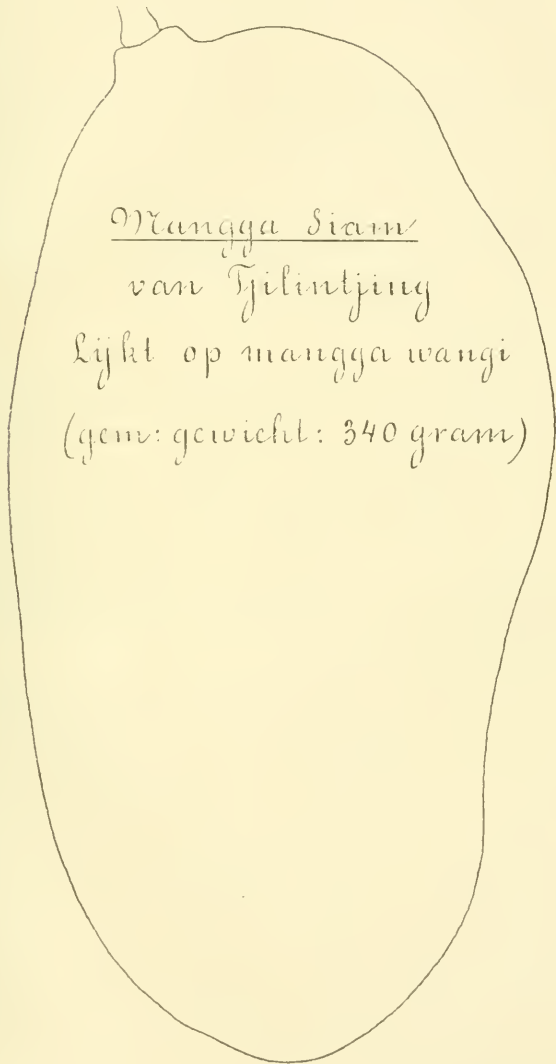 Mangga Siam
van Tjilintjing
Lijkt op mangga wangi
(gem: gewicht: 340 gram)